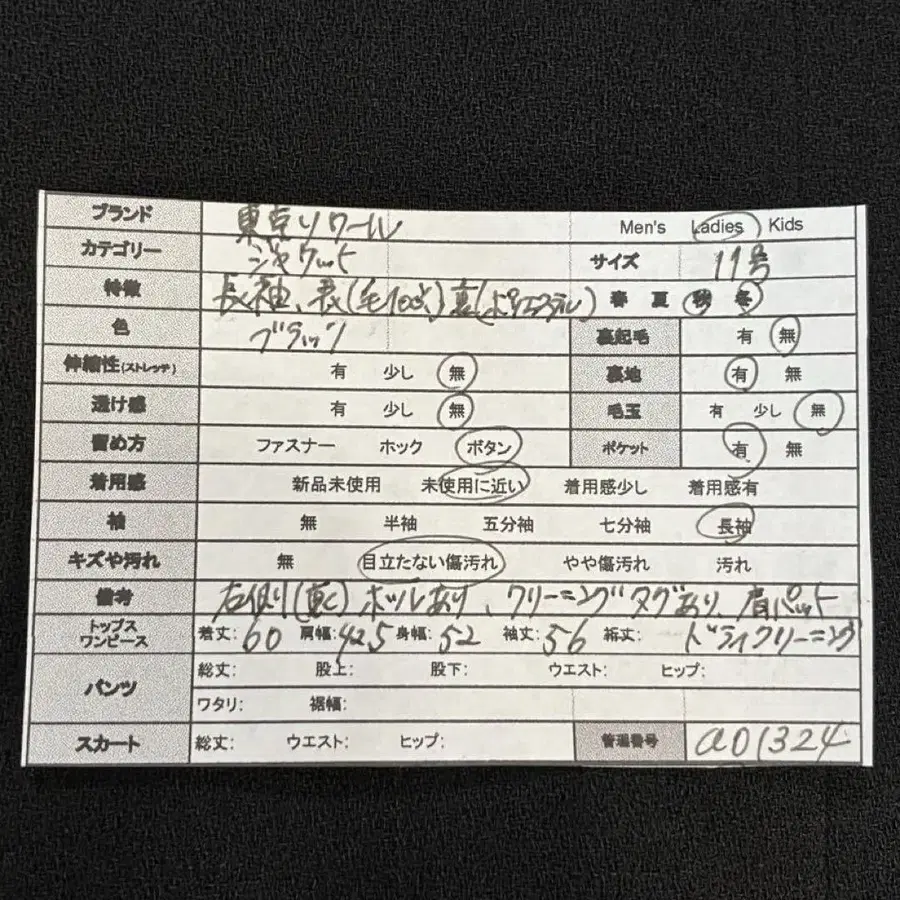 ブランド 東京ソワール Men's Ladies Kids
カテゴリー ジャケット サイズ 11号
特徴 長袖、表(毛100%)裏(ポリエステル) 春 夏 秋 冬
色 ブラック 裏起毛 有 無
伸縮性(ストレッチ) 有 少し 無 裏地 有 無
透け感 有 少し 無 毛玉 有 少し 無
留め方 ファスナー ホック ボタン ポケット 有 無
着用感 新品未使用 未使用に近い 着用感少し 着用感有
袖 無 半袖 五分袖 七分袖 長袖
キズや汚れ 無 目立たない傷汚れ やや傷汚れ 汚れ
備考 右側り ホツレあり、クリーニングタグあり、肩パット
トップス ワンピース 着丈:60 肩幅:42.5 身幅:52 袖丈:56 裄丈: ドライクリーニング
パンツ 総丈: 股上: 股下: ウエスト: ヒップ:
ワタリ: 裾幅:
スカート 総丈: ウエスト: ヒップ: 管理番号 a01324